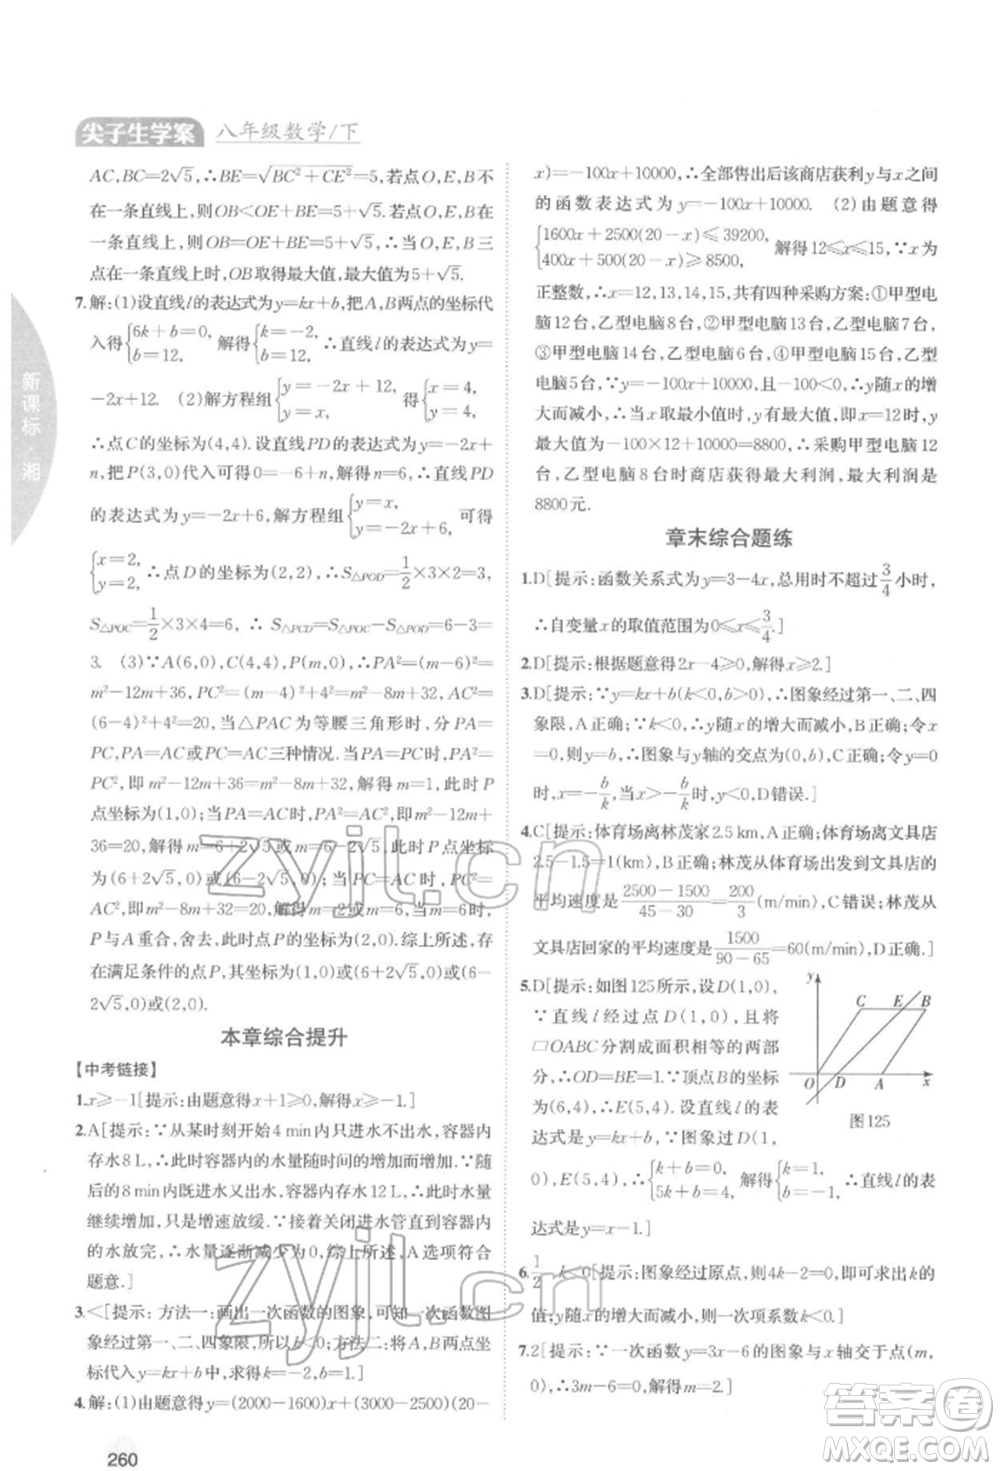 尖子生学案 八年级数学/下
AC,BC=2√5,∴BE=√(BC²+CE²)=5,若点O,E,B不
在一条直线上,则OB<OE+BE=2√5+5.若点O,E,B在
一条直线上,则OB=OE+BE=2√5+5,∴当O,E,B三
点在一条直线上时,OB取得最大值,最大值为2√5+5.]
7.解:(1)设直线l的表达式为y=kx+b,把A,B两点的坐标代
入得{6k+b=0, b=12, 解得{k=-2, b=12, ∴直线l的表达式为y=
-2x+12. (2)解方程组{y=-2x+12, y=x, 得{x=4, y=4,
∴点C的坐标为(4,4).设直线PD的表达式为y=-2x+
n,把P(3,0)代入可得-6+n=0,解得n=6,∴直线PD
的表达式为y=-2x+6,解方程组{y=x, y=-2x+6, 可得
{x=2, y=2, ∴点D的坐标为(2,2),∴S△POD=1/2×3×2=3,
S△POC=1/2×3×4=6,∴S△PCD=S△POC-S△POD=6-3=
3. (3)∵A(6,0),C(4,4),P(m,0),∴PA²=(m-6)²=
m²-12m+36,PC²=(m-4)²+4²=m²-8m+32,AC²=
(6-4)²+4²=20,当△PAC为等腰三角形时,分PA=
PC,PA=AC或PC=AC三种情况.当PA=PC时,PA²=
PC²,即m²-12m+36=m²-8m+32,解得m=1,此时P
点坐标为(1,0);当PA=AC时,PA²=AC²,即m²-12m+
36=20,解得m=6+2√5或m=6-2√5,此时P点坐标为
(6+2√5,0)或(6-2√5,0);当PC=AC时,PC²=AC²,
即m²-8m+32=20,解得m=2或m=6,当m=6时,点
P与A重合,舍去,此时P点坐标为(2,0).综上所述,存
在满足条件的点P,其坐标为(1,0)或(6+2√5,0)或(6-
2√5,0)或(2,0).
本章综合提升
【中考链接】
1.x≥-1[提示:由题意得x+1≥0,解得x≥-1.]
2.A[提示:∵从某时刻开始4 min内只进水不出水,容器内
存水8 L,∴此时容器内的水量随时间的增加而增加,∵随
后的8 min内既进水又出水,容器内存水12 L,∴此时水量
继续增加,只是增速放缓.∵接着关闭进水管直到容器内
的水放完,∴水量逐渐减少为0,综上所述,A选项符合
题意.]
3.<[提示:方法一:画出一次函数的图象,可知一次函数图
象经过第一、二、四象限,则k<0;方法二:将A,B两点的坐
标代入y=kx+b中,求得k=-2,∴k<0.]
4.解:(1)由题意得y=(2000-1600)x+(3000-2500)(20-
x)=-100x+10000,∴全部售出后该商店获利y与x之间
的函数表达式为y=-100x+10000. (2)由题意得
{1600x+2500(20-x)≤39200, 400x+500(20-x)≥8500, 解得12≤x≤15,∵x为
正整数,∴x=12,13,14,15,共有四种采购方案:①甲型电
脑12台,乙型电脑8台;②甲型电脑13台,乙型电脑7台;
③甲型电脑14台,乙型电脑6台;④甲型电脑15台,乙型电
脑5台.∵y=-100x+10000,-100<0,∴y随x的增
大而减小,∴当x取最小值时,y有最大值,即x=12时,y
最大值=-100×12+10000=8800,∴采购甲型电脑12
台,乙型电脑8台时商店获得最大利润,最大利润是
8800元.
章末综合题练
1.D[提示:函数关系式为y=3-4x,总用时不超过3/4小时,
∴自变量x的取值范围为0≤x≤3/4.]
2.D[提示:根据题意得2x-4≥0,解得x≥2.]
3.D[提示:∵y=kx+b(k<0,b>0),∴图象经过第一、二、四
象限,A正确;∵k<0,∴y随x的增大而减小,B正确;令x=
0,则y=b,∴图象与y轴的交点为(0,b),C正确;令y=0
时,x=-b/k,当x>-b/k时,y<0,D错误.]
4.C[提示:体育场离林茂家2.5 km,体育场离文具店
2.5-1.5=1(km),∴林茂从体育场出发到文具店
的平均速度是(2500-1500)/(45-30)=200/3(m/min),C错误,林茂从
文具店回家的平均速度是1500/(90-65)=60(m/min),D正确.]
5.D[提示:如图125所示,设D(1,0),
∵直线l经过点D(1,0),且将
□OABC分割成面积相等的两部
分,∴OD=BE=1.∵顶点B的坐标为
(6,4),∴E(5,4).设直线l的表
达式是y=kx+b,∵图象过D(1,
0),E(5,4),∴{k+b=0, 5k+b=4, 解得{k=1, b=-1, ∴直线l的表
达式为y=x-1.]
y C E B O D A x
图125
6.1/2 k<0[提示:图象经过原点,则4k-2=0,可求出k的
值;y随x的增大而减小,则一次项系数k<0.]
7.2[提示:∵一次函数y=3x-6的图象与x轴交于点(m,
0),∴3m-6=0,解得m=2.]
新课标·湘
260
zyjl.cn
zyjl.cn
答案圈
MXQE.COM